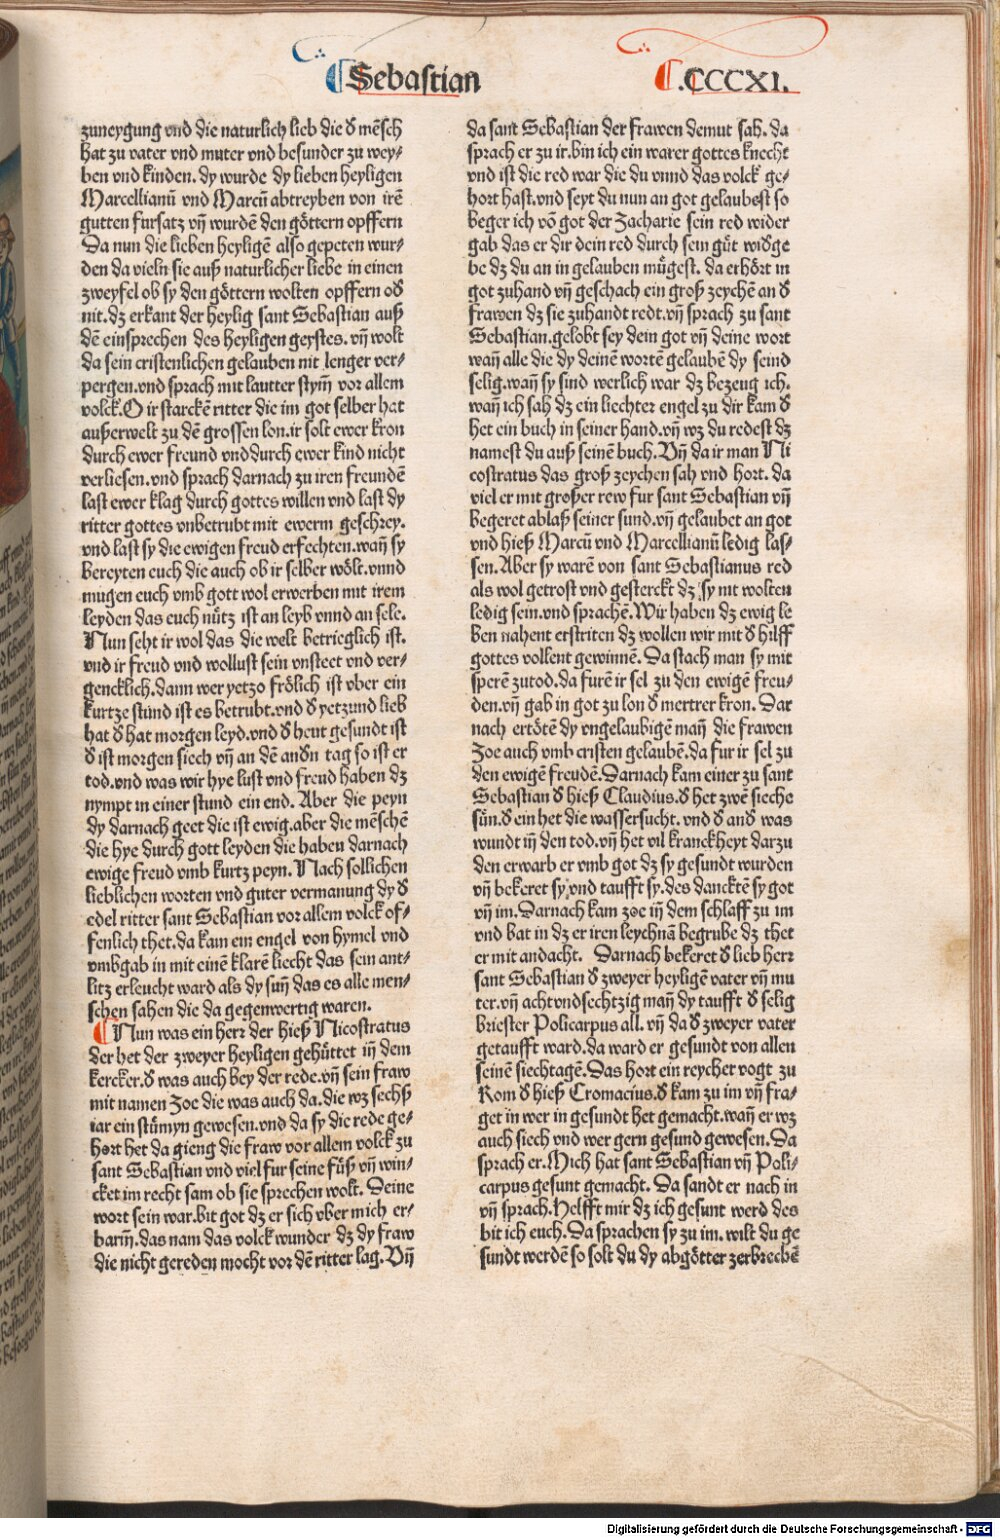 Sebastian
.CCCXI.
zuneygung vnd die naturlich lieb die d̕ mẽsch
hat zu vater vnd muter vnd besunder zu wey⸗
ben vnd kinden. dy wurde dy lieben heyligen
Marcellianũ vnd Marcũ abtreyben von irẽ
gutten fursatz vñ wurdẽ den göttern opffern
Da nun die lieben heyligẽ also gepeten wur⸗
den da vieln sie auß naturlicher liebe in einen
zweyfel ob sy den göttern wolten opffern od̕
nit. dz erkant der heylig sant Sebastian auß
dẽ einsprechen des heyligen geystes. vñ wolt
da sein cristenlichen gelauben nit lenger ver⸗
pergen. vnd sprach mit lautter stym̃ vor allem
volck. O ir starckẽ ritter die im got selber hat
außerwelt zu dẽ grossen lon. ir solt ewer kron
durch ewer freund vnd durch ewer kind nicht
verliesen. vnd sprach darnach zu iren freundẽ
last ewer klag durch gottes willen vnd last dy
ritter gottes vnbetrubt mit ewerm geschrey.
vnd last sy die ewigen freud erfechten. wañ sy
bereyten euch die auch ob ir selber wölt. vnnd
mugen euch vmb gott wol erwerben mit irem
leyden das euch nütz ist an leyb vnnd an sele.
Nun seht ir wol das die welt betrieglich ist.
vnd ir freud vnd wollust sein vnsteet vnd ver⸗
gencklich. dann wer yetzo frölich ist vber ein
kurtze stund ist es betrubt. vnd d̕ yetzund lieb
hat d̕ hat morgen leyd. vnd d̕ heut gesundt ist
d̕ ist morgen siech vñ an dẽ and̕n tag so ist er
tod. vnd was wir hye lust vnd freud haben dz
nympt in einer stund ein end. Aber die peyn
dy darnach geet die ist ewig. aber die mẽschẽ
die hye durch gott leyden die haben darnach
ewige freud vmb kurtz peyn. Nach sollichen
lieblichen worten vnd guter vermanung dy d̕
edel ritter sant Sebastian vor allem volck of⸗
fenlich thet. da kam ein engel von hymel vnd
vmbgab in mit einẽ klarẽ liecht das sein ant⸗
litz erleucht ward als dy suñ das es alle men⸗
schen sahen die da gegenwertig waren.
Nun was ein herr der hieß Nicostratus
der het der zweyer heyligen gehüttet iñ dem
kercker. d̕ was auch bey der rede. vñ sein fraw
mit namen Zoe die was auch da. die wz sechß
iar ein stümyn gewesen. vnd da sy die rede ge⸗
hort het da gieng die fraw vor allem volck zu
sant Sebastian vnd viel fur seine füß vñ win⸗
cket im recht sam ob sie sprechen wolt. Seine
wort sein war. bit got dz er sich vber mich er⸗
barm̃. das nam das volck wunder dz dy fraw
die nicht gereden mocht vor dẽ ritter lag. Vñ
da sant Sebastian der frawen demut sah. da
sprach er zu ir. bin ich ein warer gottes knecht
vnd ist die red war die du vnnd das volck ge⸗
hort hast. vnd seyt du nun an got gelaubest so
beger ich võ got der Zacharie sein red wider
gab das er dir dein red durch sein güt wid̕ge
be dz du an in gelauben mügest. da erhört in
got zuhand vñ geschach ein groß zeychẽ an d̕
frawen dz sie zuhandt redt. vñ sprach zu sant
Sebastian. gelobt sey dein got vñ deine wort
wañ alle die dy deinẽ wortẽ gelaubẽ dy seind
selig. wañ sy sind werlich war dz bezeug ich.
wañ ich sah dz ein liechter engel zu dir kam d̕
het ein buch in seiner hand. vñ wz du redest dz
namest du auß seinẽ buch. Vñ da ir man Ni
costratus das groß zeychen sah vnd hort. da
viel er mit großer rew fur sant Sebastian vñ
begeret ablaß seiner sund. vñ gelaubet an got
vnd hieß Marcũ vnd Marcellianũ ledig las⸗
sen. Aber sy warẽ von sant Sebastianus red
als wol getrost vnd gesterckt dz sy nit wolten
ledig sein. vnd sprachẽ. Wir haben dz ewig le
ben nahent erstriten dz wollen wir mit d̕ hilff
gottes vollent gewinnẽ. Da stach man sy mit
sperẽ zutod. da furẽ ir sel zu den ewigẽ freu⸗
den. vñ gab in got zu lon d̕ mertrer kron. Dar
nach ertötẽ dy vngelaubigẽ mañ die frawen
Zoe auch vmb cristen gelaubẽ. da fur ir sel zu
den ewigẽ freudẽ. Darnach kam einer zu sant
Sebastian d̕ hieß Claudius. d̕ het zwẽ sieche
sün. d̕ ein het die wassersucht. vnd d̕ and̕ was
wundt iñ den tod. vñ het vil kranckheyt darzu
den erwarb er vmb got dz sy gesundt wurden
vñ bekeret sy. vnd taufft sy. des dancktẽ sy got
vñ im. Darnach kam zoe iñ dem schlaff zu im
vnd bat in dz er iren leychnã begrube dz thet
er mit andacht. Darnach bekeret d̕ lieb herr
sant Sebastian d̕ zweyer heyligẽ vater vñ mu
ter. vñ achtvndsechtzig mañ dy taufft d̕ selig
briester Policarpus all. vñ da d̕ zweyer vater
getaufft ward. da ward er gesundt von allen
seinẽ siechtagẽ. Das hort ein reycher vogt zu
Rom d̕ hieß Cromacius. d̕ kam zu im vñ fra⸗
get in wer in gesundt het gemacht. wañ er wz
auch siech vnd wer gern gesund gewesen. Da
sprach er. Mich hat sant Sebastian vñ Poli⸗
carpus gesunt gemacht. Da sandt er nach in
vñ sprach. Helfft mir dz ich gesunt werd des
bit ich euch. Da sprachen sy zu im. wilt du ge
sundt werdẽ so solt du dy abgötter zerbrechẽ
Digitalisierung gefördert durch die Deutsche Forschungsgemeinschaft - DFG